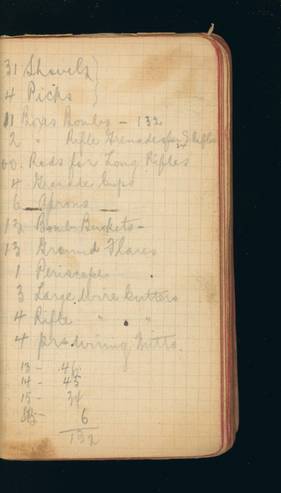 31 Shovels
4 Picks
11 Boxes Bombs - 132
2 " Rifle Grenades for S Rifles
00. Rods for Long Rifles
4 Grenade Cups
6 Aprons
13 Bomb Buckets -
13 Ground Flares
1 Periscope
3 Large Wire Cutters
4 Rifle " "
4 prs. wiring Mitts.
13 - 46
14 - 45
15 - 34
6
132